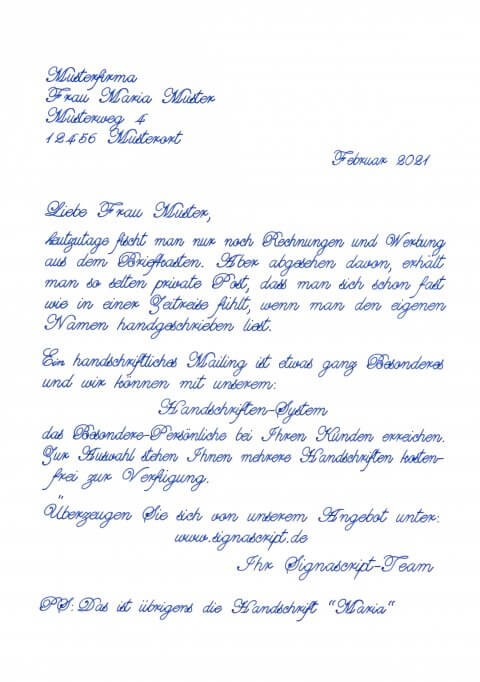 Musterfirma
Frau Maria Muster
Musterweg 4
12456 Musterort
Februar 2021
Liebe Frau Muster,
heutzutage fischt man nur noch Rechnungen und Werbung
aus dem Briefkasten. Aber abgesehen davon, erhält
man so selten private Post, dass man sich schon fast
wie in einer Zeitreise fühlt, wenn man den eigenen
Namen handgeschrieben liest.
Ein handschriftliches Mailing ist etwas ganz Besonderes
und wir können mit unserem:
Handschriften-System
das Besondere-Persönliche bei Ihren Kunden erreichen.
Zur Auswahl stehen Ihnen mehrere Handschriften kosten-
frei zur Verfügung.
Überzeugen Sie sich von unserem Angebot unter:
www.signascript.de
Ihr Signascript-Team
PS: Das ist übrigens die Handschrift "Maria"